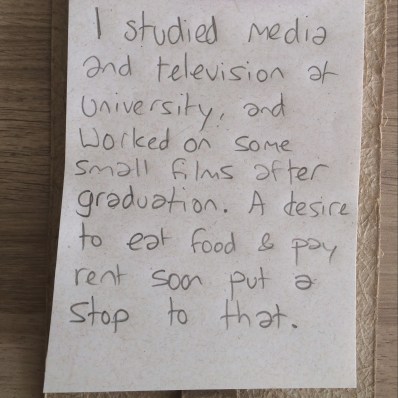 I studied media
and television at
University, and
Worked on some
small films after
graduation. A desire
to eat food & pay
rent soon put a
Stop to that.